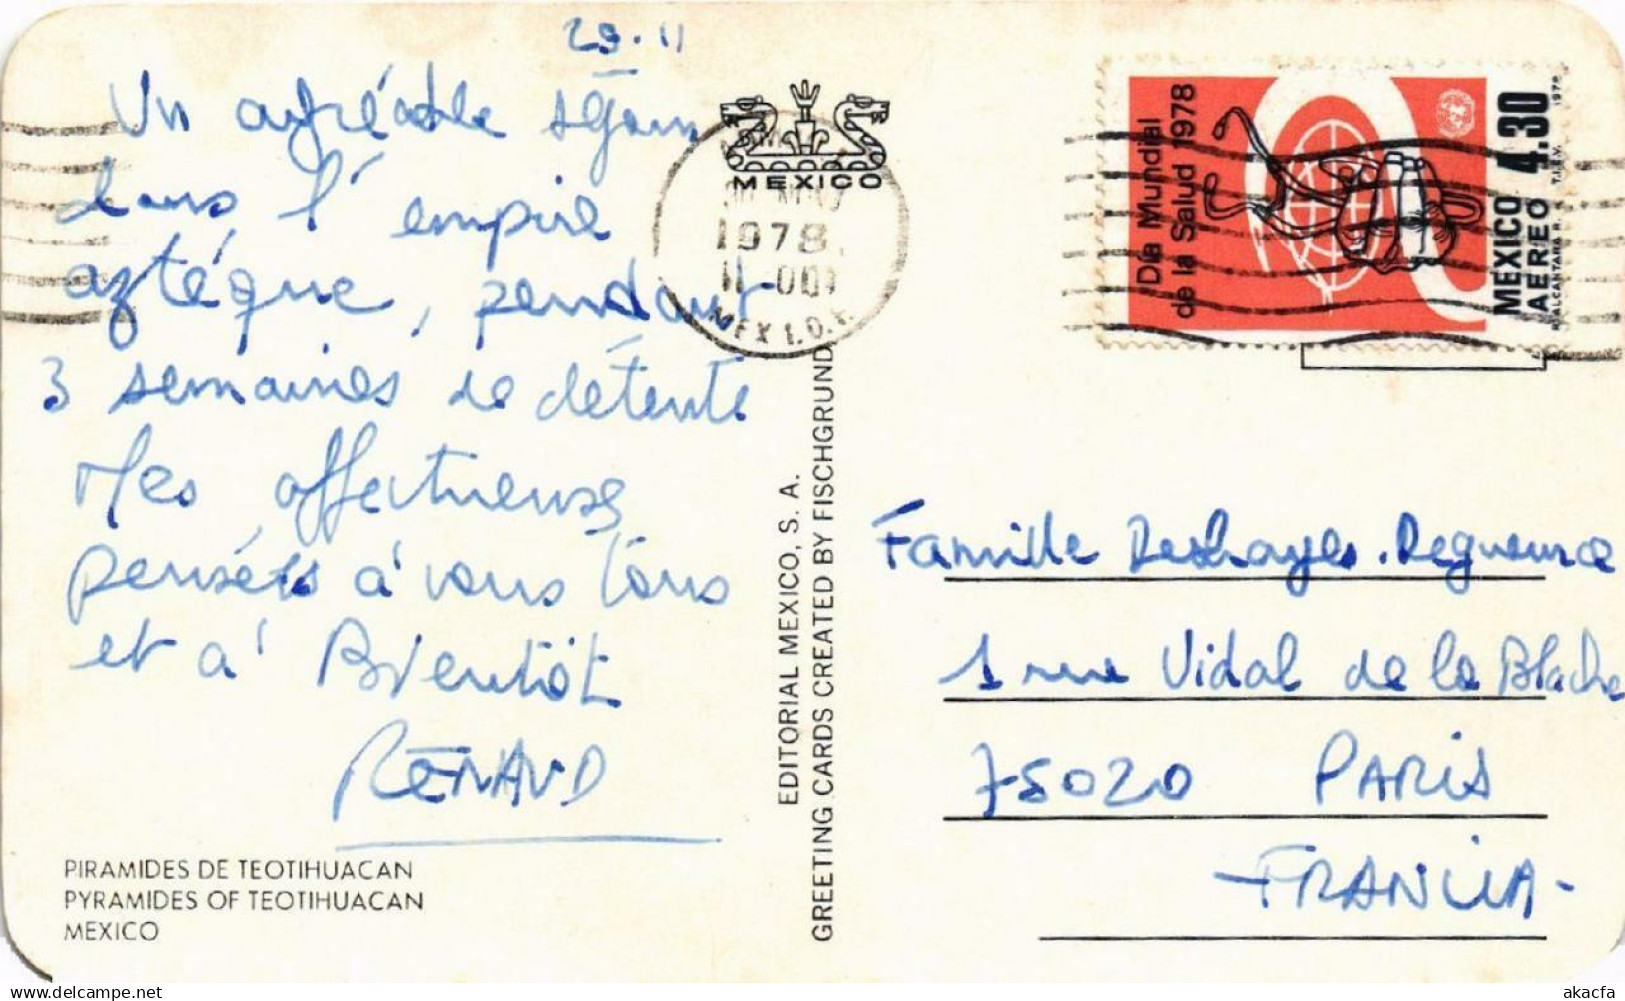 29.11
Un agréable séjour
dans l'empire
aztéque, pendant
3 semaines de détente
Mes affectueuses
pensées à vous tous
et à Bientôt
RENAUD
PIRAMIDES DE TEOTIHUACAN
PYRAMIDES OF TEOTIHUACAN
MEXICO
MEXICO
1978
MEX 1, D.F.
EDITORIAL MEXICO, S. A.
GREETING CARDS CREATED BY FISCHGRUND
Día Mundial
de la Salud 1978
MEXICO 4.30
AEREO
1978
Famille Deshayes.
1 rue Vidal de la Blache
75020 PARIS
FRANCIA
delcampe.net
akacfa